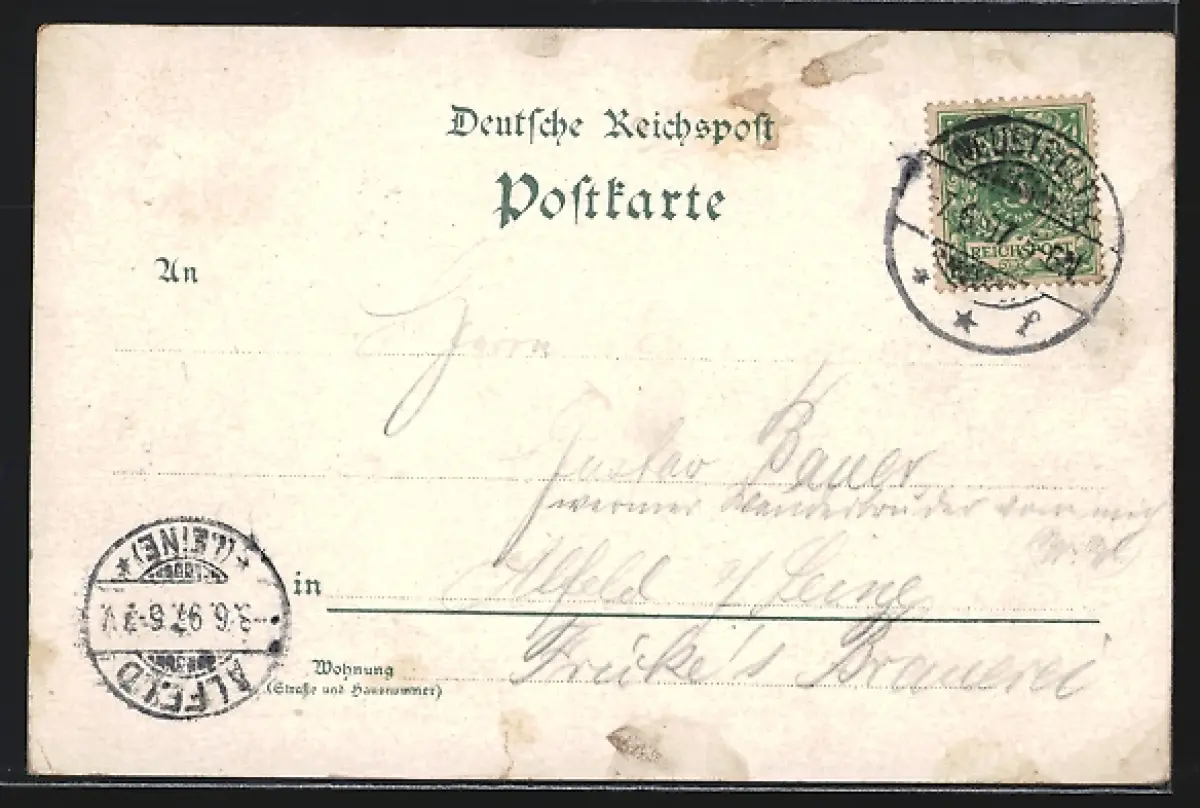 Deutsche Reichspost
Postkarte
An
REICHSPOST
Herrn
Gustav Bauer
Wanderbruder
Alfeld a/ Leine
in
Fricke's Brauerei
Wohnung
(Straße und Hausnummer)
ALFELD
3.6.97.6-7V.
*(LEINE)*